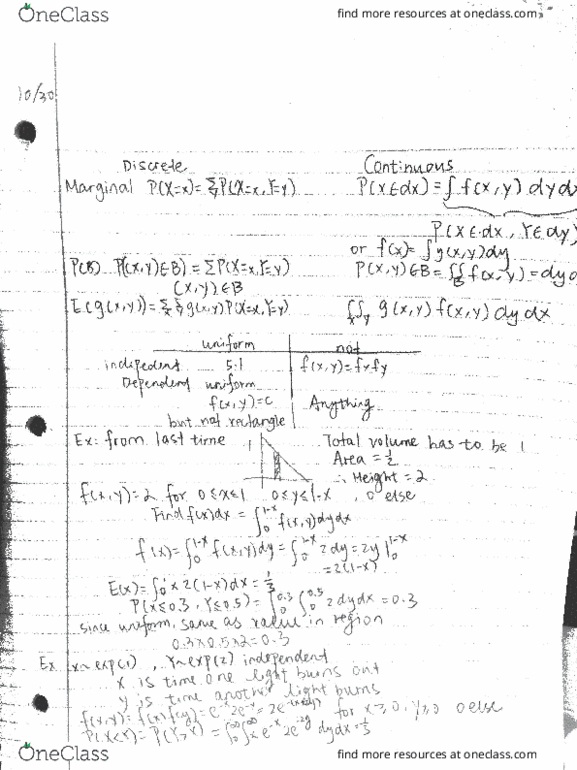 OneClass
find more resources at oneclass.com
10/30
Discrete Continuous
Marginal P(X=x)= Σ P(X=x, Y=y) P(X∈dx) = ∫ f(x,y) dydx
P(X∈dx, Y∈dy)
or f(x)= ∫g(x,y)dy
P(B) P((x,y)∈B) = ΣP(X=x,Y=y) P(x,y)∈B = ∫∫ f(x,y)=dyd
(x,y)∈B B
E(g(x,y)) = Σ Σ g(x,y) P(X=x, Y=y) ∫x∫y g(x,y) f(x,y) dydx
uniform not
indipedent 5.1 f(x,y)=fxfy
Dependent uniform
f(x,y)=c Anything
but not rectangle
Ex: from last time 1 Total volume has to be 1
Area = 1/2
∴ Height = 2
f(x,y)=2 for 0≤x≤1 0≤y≤1-x, 0 else
Find f(x)dx = ∫₀^(1-x) f(x,y)dydx
f(x)= ∫₀^(1-x) f(x,y)dy = ∫₀^(1-x) 2dy = 2y |₀^(1-x)
=2(1-x)
E(x)= ∫₀^1 x 2(1-x)dx = 1/3
P(X≤0.3, Y≤0.5) = ∫₀^0.3 ∫₀^0.5 2dydx = 0.3
since uniform, same as value in region
0.3x0.5x2=0.3
Ex x~exp(1), Y~exp(2) independent
x is time one light burns out
y is time another light burns
f(x,y)= f(x)f(y)= 0 else
for x≥0, y≥0
P(X<Y)= P(Y>X) = ∫₀^∞∫x^∞ e^-x 2e^-2y dydx = 1/3
OneClass
find more resources at oneclass.com